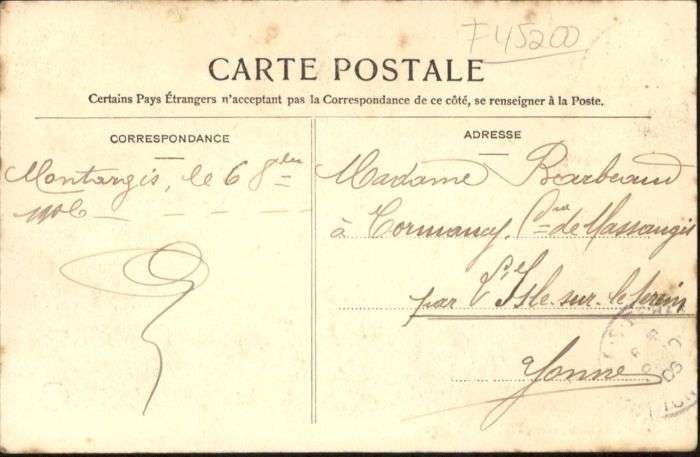 F45200
CARTE POSTALE
Certains Pays Étrangers n'acceptant pas la Correspondance de ce côté, se renseigner à la Poste.
CORRESPONDANCE
Montargis, le 6 8bre
1906
ADRESSE
Madame Barbeaud
à Tormancy, Cne de Massangis
par L'Isle-sur-le-Serein
Yonne